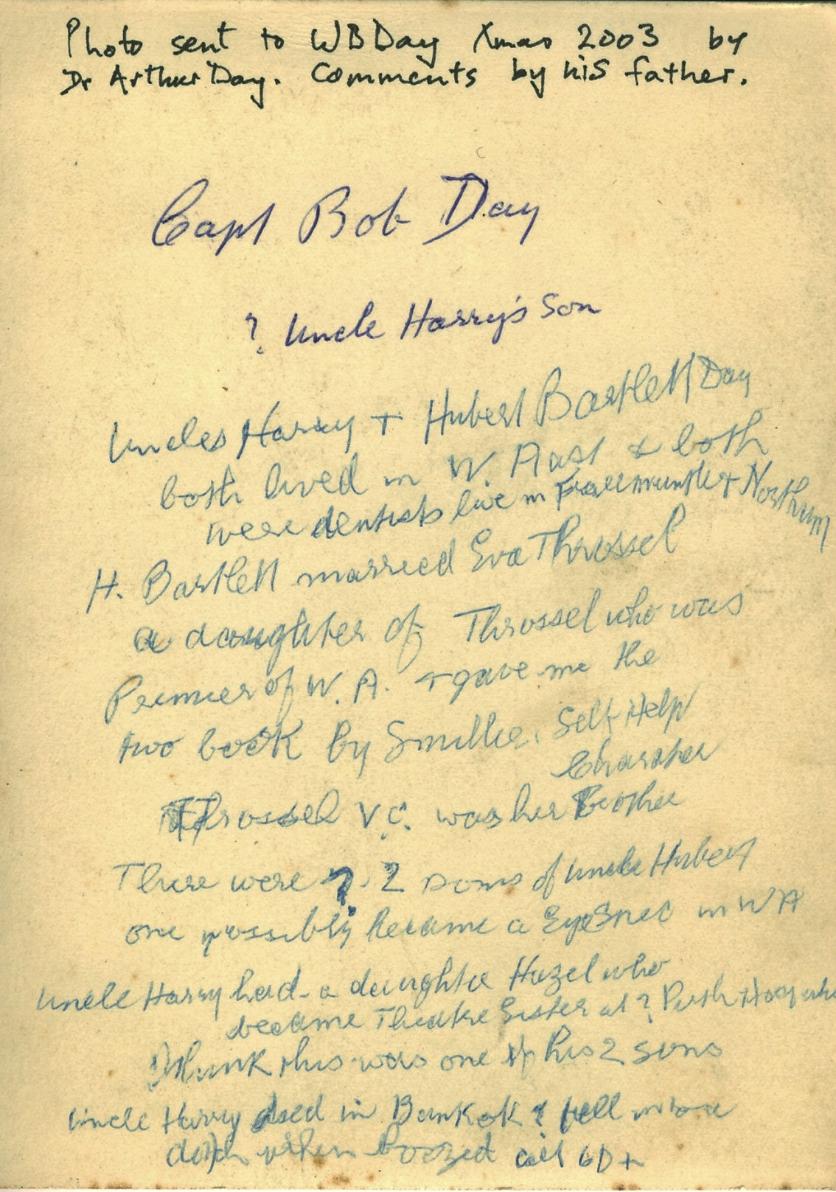 Photo sent to WBDay Xmas 2003 by
Dr Arthur Day. Comments by his father.
Capt Bob Day
? Uncle Harry's Son
Uncles Harry + Hubert Bartlett Day
both lived in W. Aust & both
were dentists live in & Northum
H. Bartlett married Eva Throssel
a daughter of Throssel who was
Premier of W.A. + gave me the
two book by Smillie. Self Help
Character
Throssel V.C. was her Brother
There were ? 2 sons of Uncle Hubert
one possibly became a EyeSpec in WA
Uncle Harry had a daughter Hazel who
became Theatre Sister at ? Perth Hosp who
I think this was one of his 2 sons
Uncle Harry died in Bankok ? fell into a
ditch when boozed aet 60+